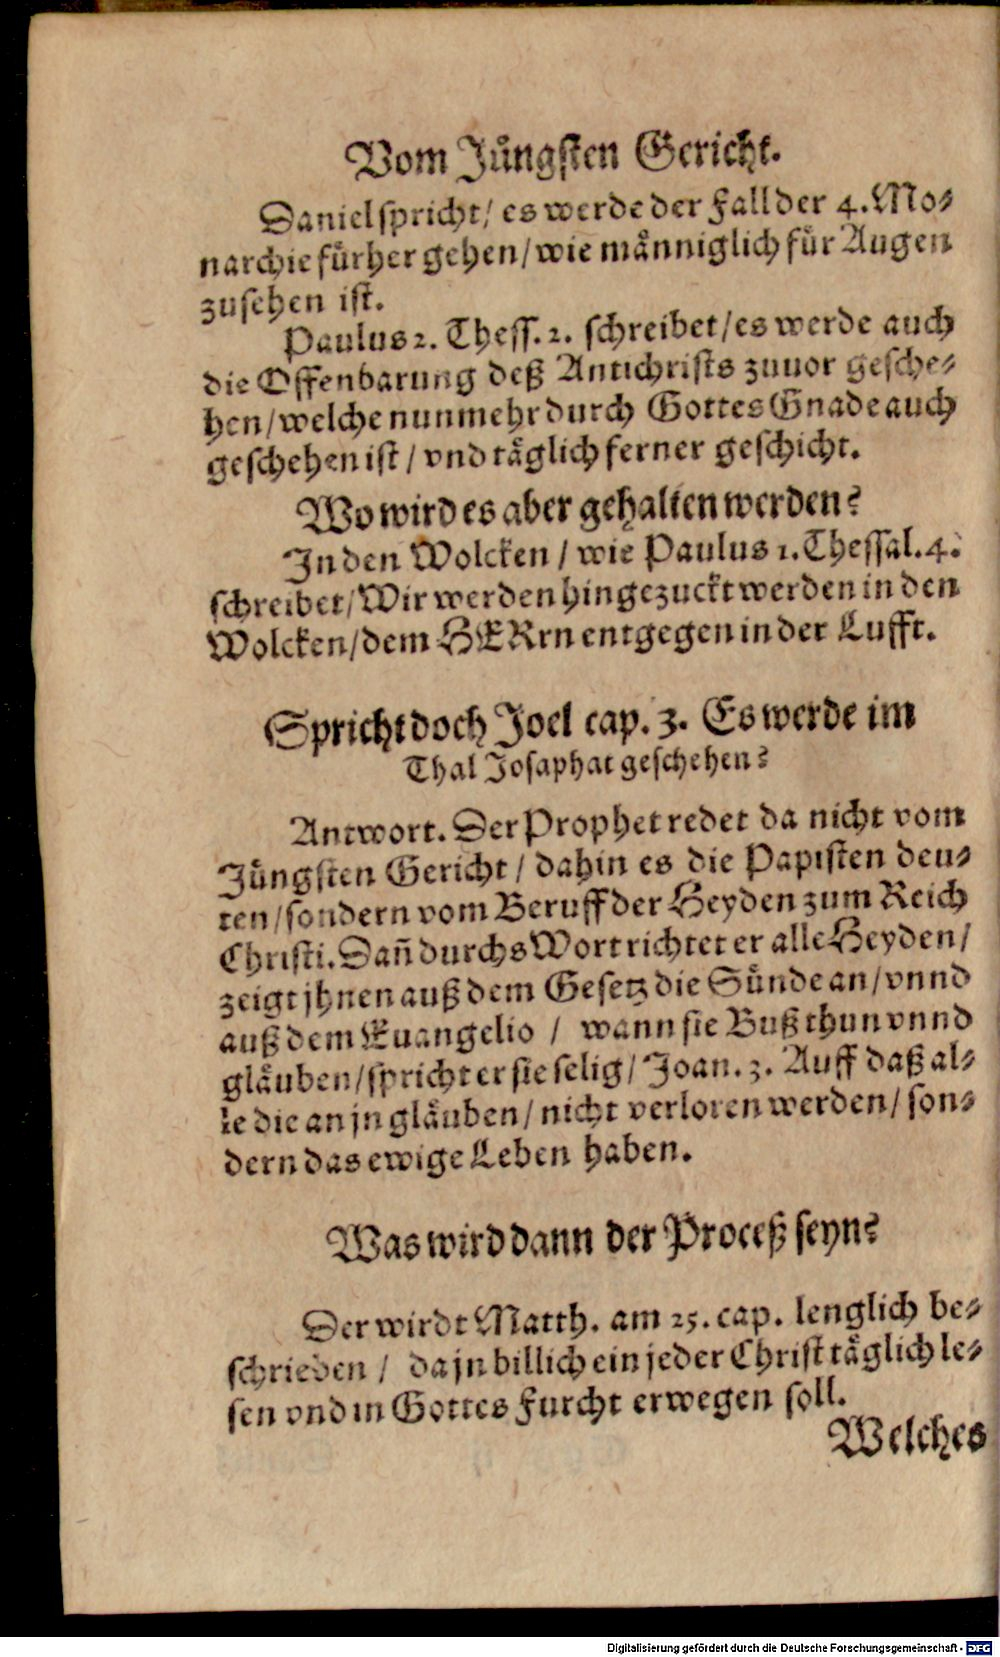 Vom Jüngsten Gericht.
Daniel spricht/ es werde der Fall der 4. Mo-
narchie fürher gehen/ wie männiglich für Augen
zusehen ist.
Paulus 2. Thess. 2. schreibet/ es werde auch
die Offenbarung deß Antichrists zuuor gesche-
hen/ welche nunmehr durch Gottes Gnade auch
geschehen ist/ vnd täglich ferner geschicht.
Wo wird es aber gehalten werden?
In den Wolcken/ wie Paulus 1. Thessal. 4.
schreibet/ Wir werden hingezuckt werden in den
Wolcken/ dem HERrn entgegen in der Lufft.
Spricht doch Joel cap. 3. Es werde im
Thal Josaphat geschehen?
Antwort. Der Prophet redet da nicht vom
Jüngsten Gericht/ dahin es die Papisten deu-
ten/ sondern vom Beruff der Heyden zum Reich
Christi. Dañ durchs Wort richtet er alle Heyden/
zeigt jhnen auß dem Gesetz die Sünde an/ vnnd
auß dem Euangelio/ wann sie Buß thun vnnd
gläuben/ spricht er sie selig/ Joan. 3. Auff daß al-
le die an jn gläuben/ nicht verloren werden/ son-
dern das ewige Leben haben.
Was wird dann der Proceß seyn?
Der wirdt Matth. am 25. cap. lenglich be-
schrieben/ da jn billich ein jeder Christ täglich le-
sen vnd in Gottes Furcht erwegen soll.
Welches
Digitalisierung gefördert durch die Deutsche Forschungsgemeinschaft - DFG